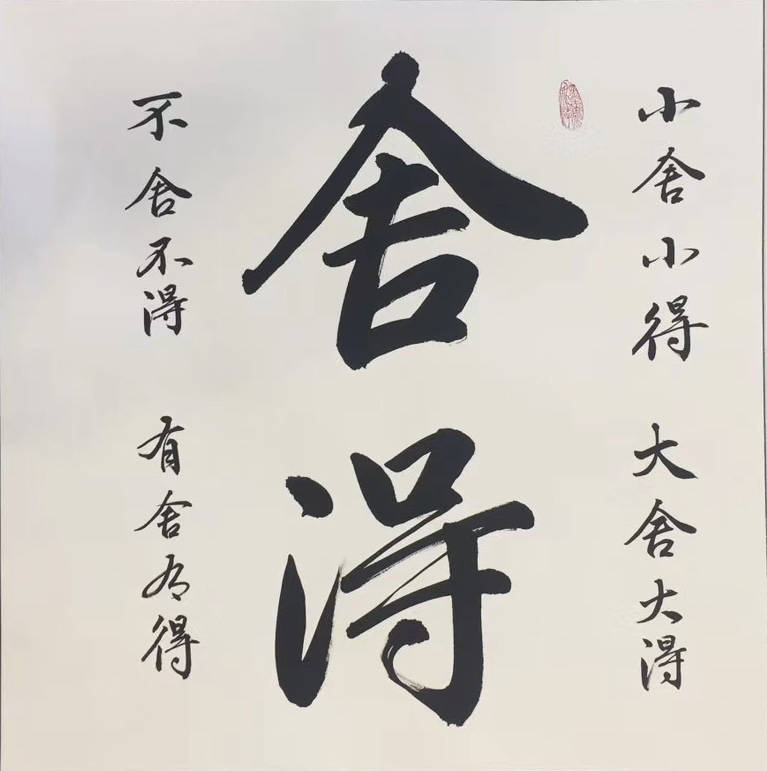 小舍小得 大舍大得
舍得
不舍不得 有舍有得